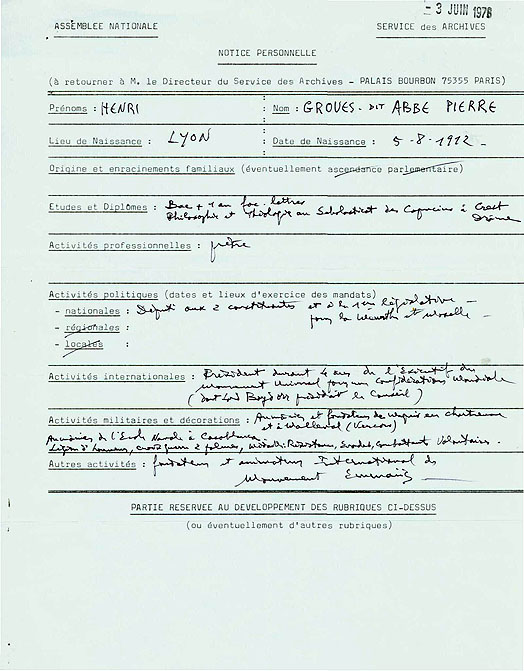 - 3 JUIN 1976
ASSEMBLEE NATIONALE SERVICE des ARCHIVES
NOTICE PERSONNELLE
(à retourner à M. le Directeur du Service des Archives - PALAIS BOURBON 75355 PARIS)
Prénoms : HENRI : Nom : GROUES - DIT ABBE PIERRE
Lieu de Naissance : LYON : Date de Naissance : 5-8-1912 -
Origine et enracinements familiaux (éventuellement ascendance parlementaire)
Etudes et Diplômes : Bac + 1 an fac. lettres
Philosophie et théologie au Scholasticat des Capucins à Crest
Drôme
Activités professionnelles : prêtre
Activités politiques (dates et lieux d'exercice des mandats)
- nationales : Député aux 2 constituantes et à la 1ère législative -
pour la Meurthe et Moselle -
- régionales :
- locales :
Activités internationales : Président durant 4 ans de l'Exécutif du
Mouvement Universel pour une Confédération Mondiale
(dont Lord Boyd Orr présidait le Conseil)
Activités militaires et décorations : Aumônier et fondateur de maquis en Chartreuse
et à Malleval (Vercors)
Aumônier de l'Ecole Navale à Casablanca
Légion d'honneur, croix guerre 2 palmes, médaille Résistance, Evadés, combattant Volontaire.
Autres activités : fondateur et animateur International du
Mouvement Emmaüs
PARTIE RESERVEE AU DEVELOPPEMENT DES RUBRIQUES CI-DESSUS
(ou éventuellement d'autres rubriques)